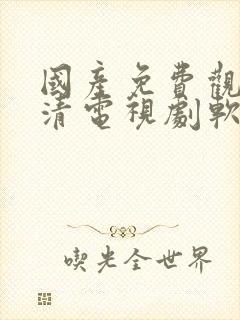 國產免費觀
清電視劇軟
喫光全世界